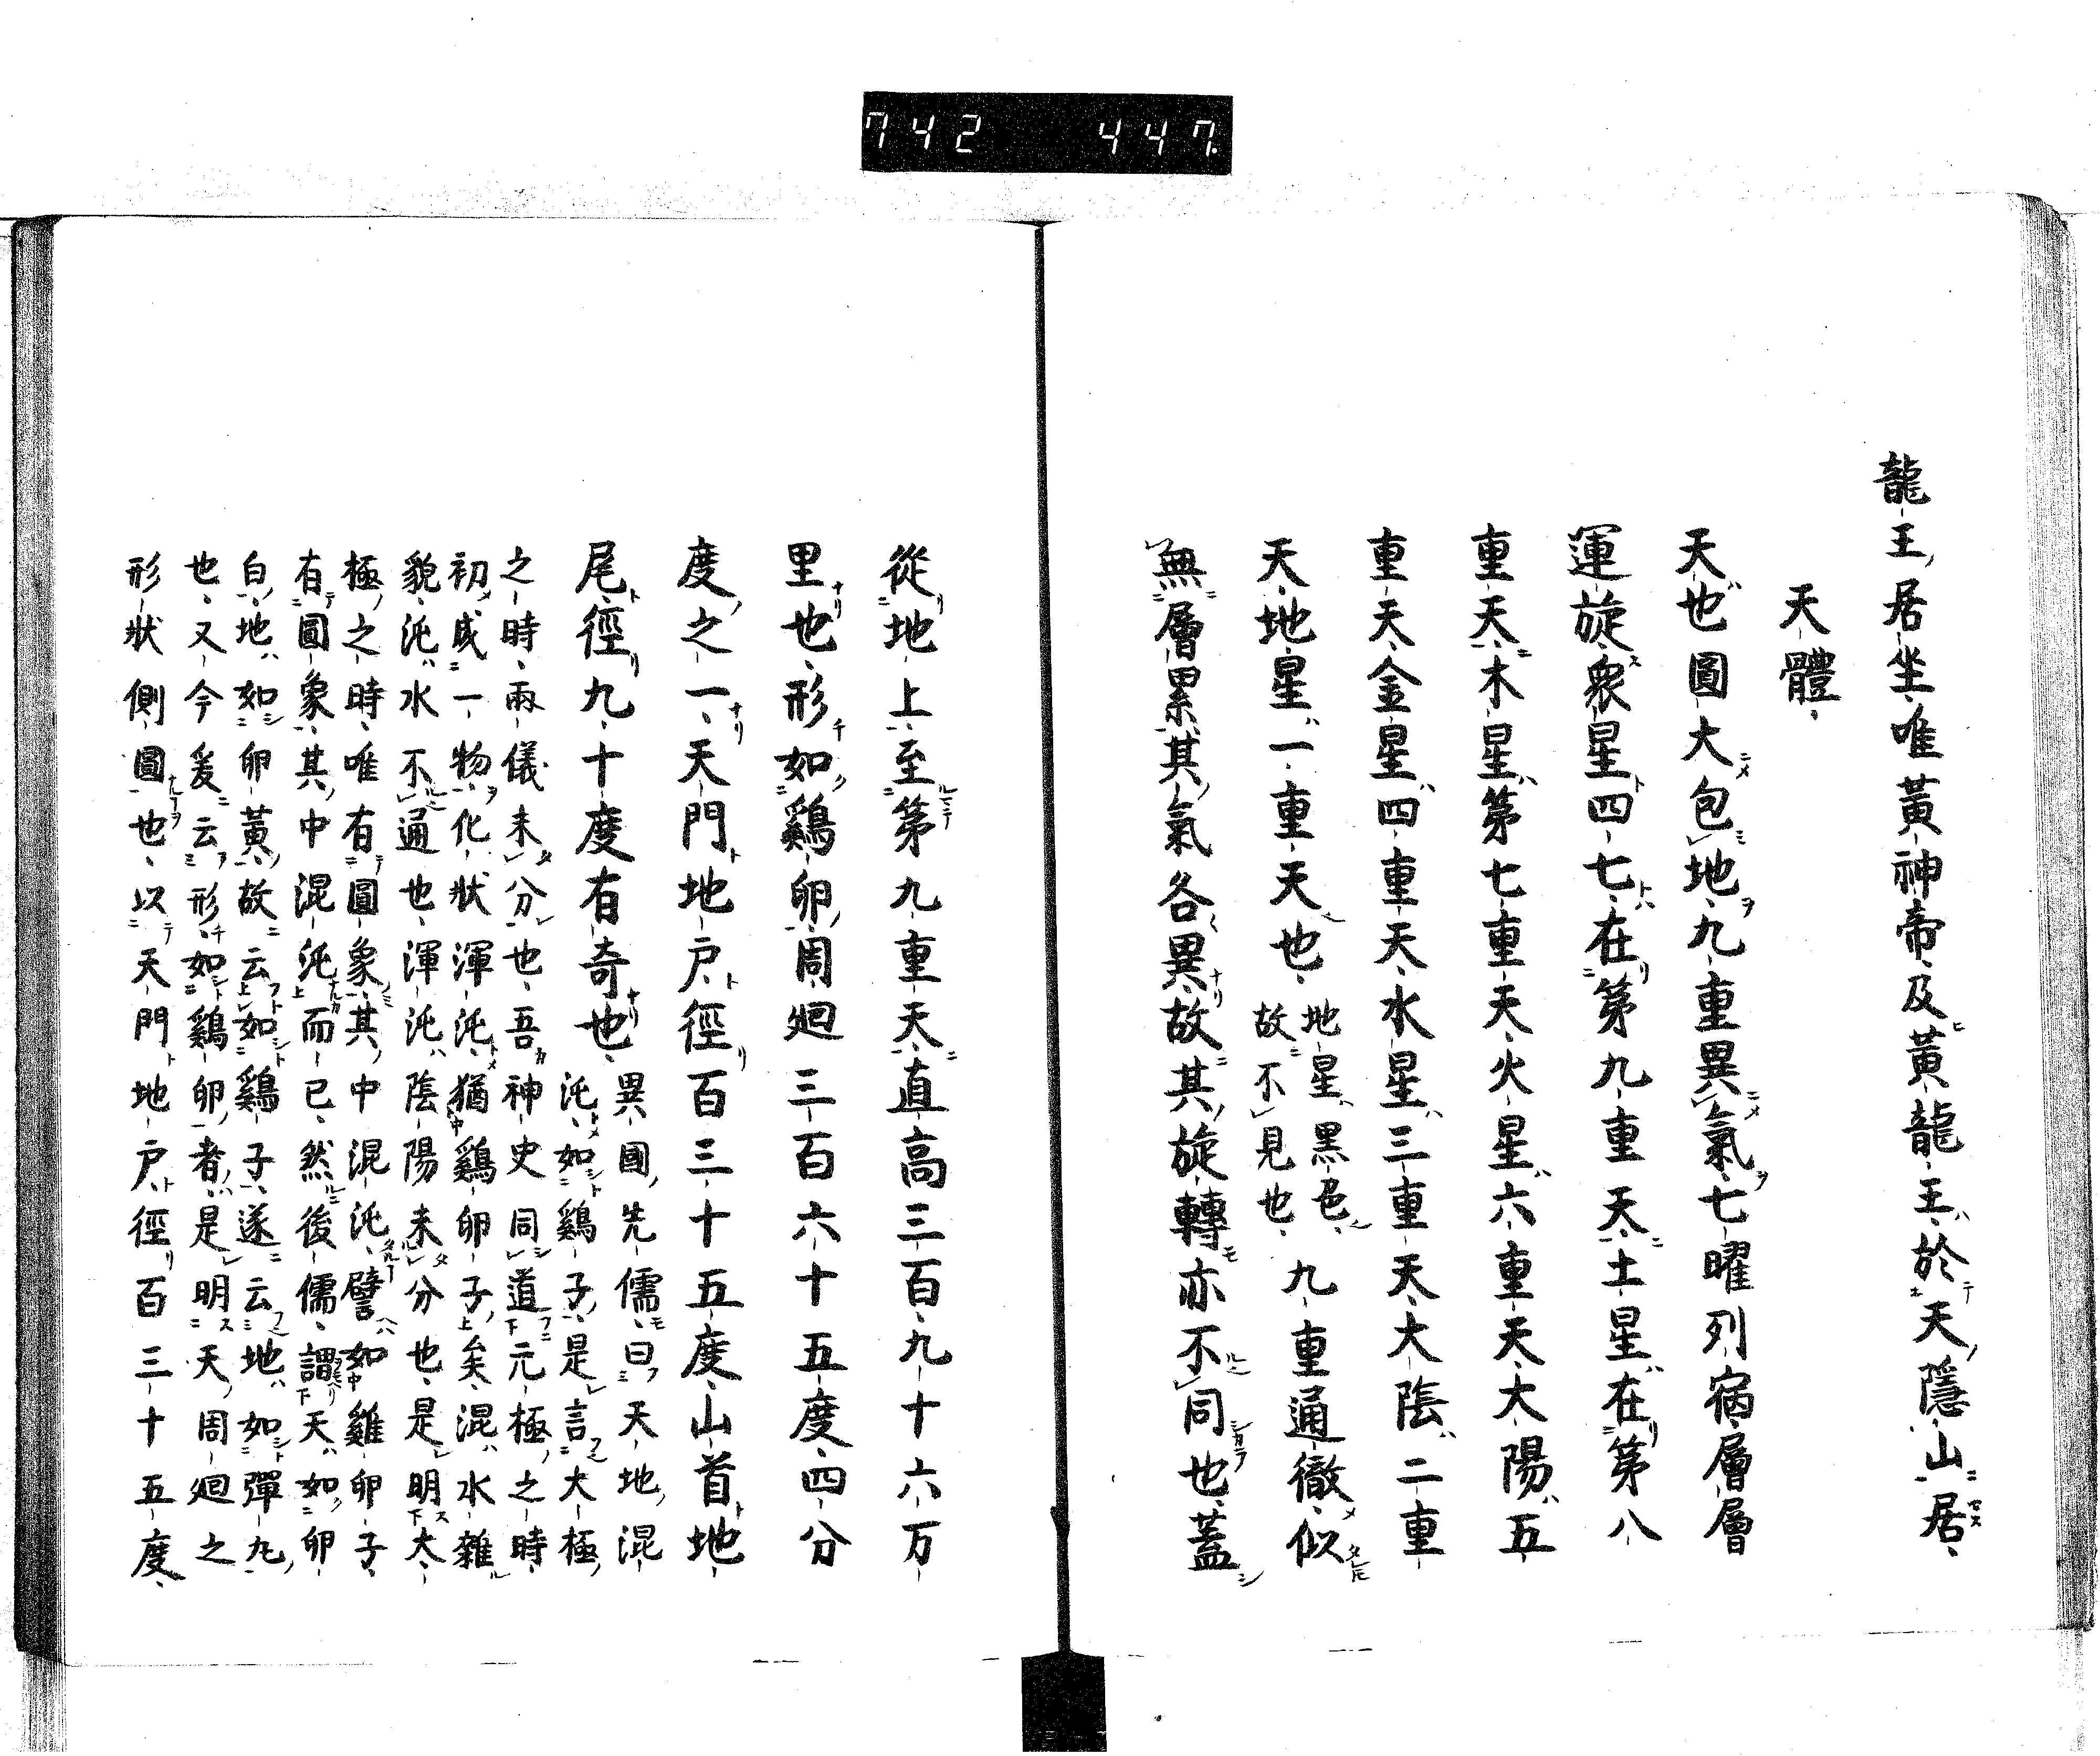 742 447.
龍王居坐唯黃神帝及黃龍王於天隱山居
天體
天也圓大包地九重異氣七曜列宿層層
運旋衆星四七在第九重天土星在第八
重天木星第七重天火星六重天大陽五
重天金星四重天水星三重天大陰二重
天地星一重天也
地星黒色
故不見也
九重通徹似
無層累其氣各異故其旋轉亦不同也蓋
從地上至第九重天直高三百九十六万
里也形如鷄卵周廻三百六十五度四分
度之一天門地戸徑百三十五度山首地
尾徑九十度有奇也
異國先儒曰天地混
沌如鷄子是言大極
之時兩儀未分也吾神史同道元極之時
初成一物化狀渾沌猶鷄卵子矣混水雜
貌沌水不通也渾沌陰陽未分也是明大
極之時唯有圓象其中混沌譬如雞卵子
有圓象其中混沌而已然後儒謂天如卵
白地如卵黃故云如鷄子遂云地如彈丸
也又今爰云形如鷄卵者是明天周廻之
形狀側圓也以天門地戸徑百三十五度